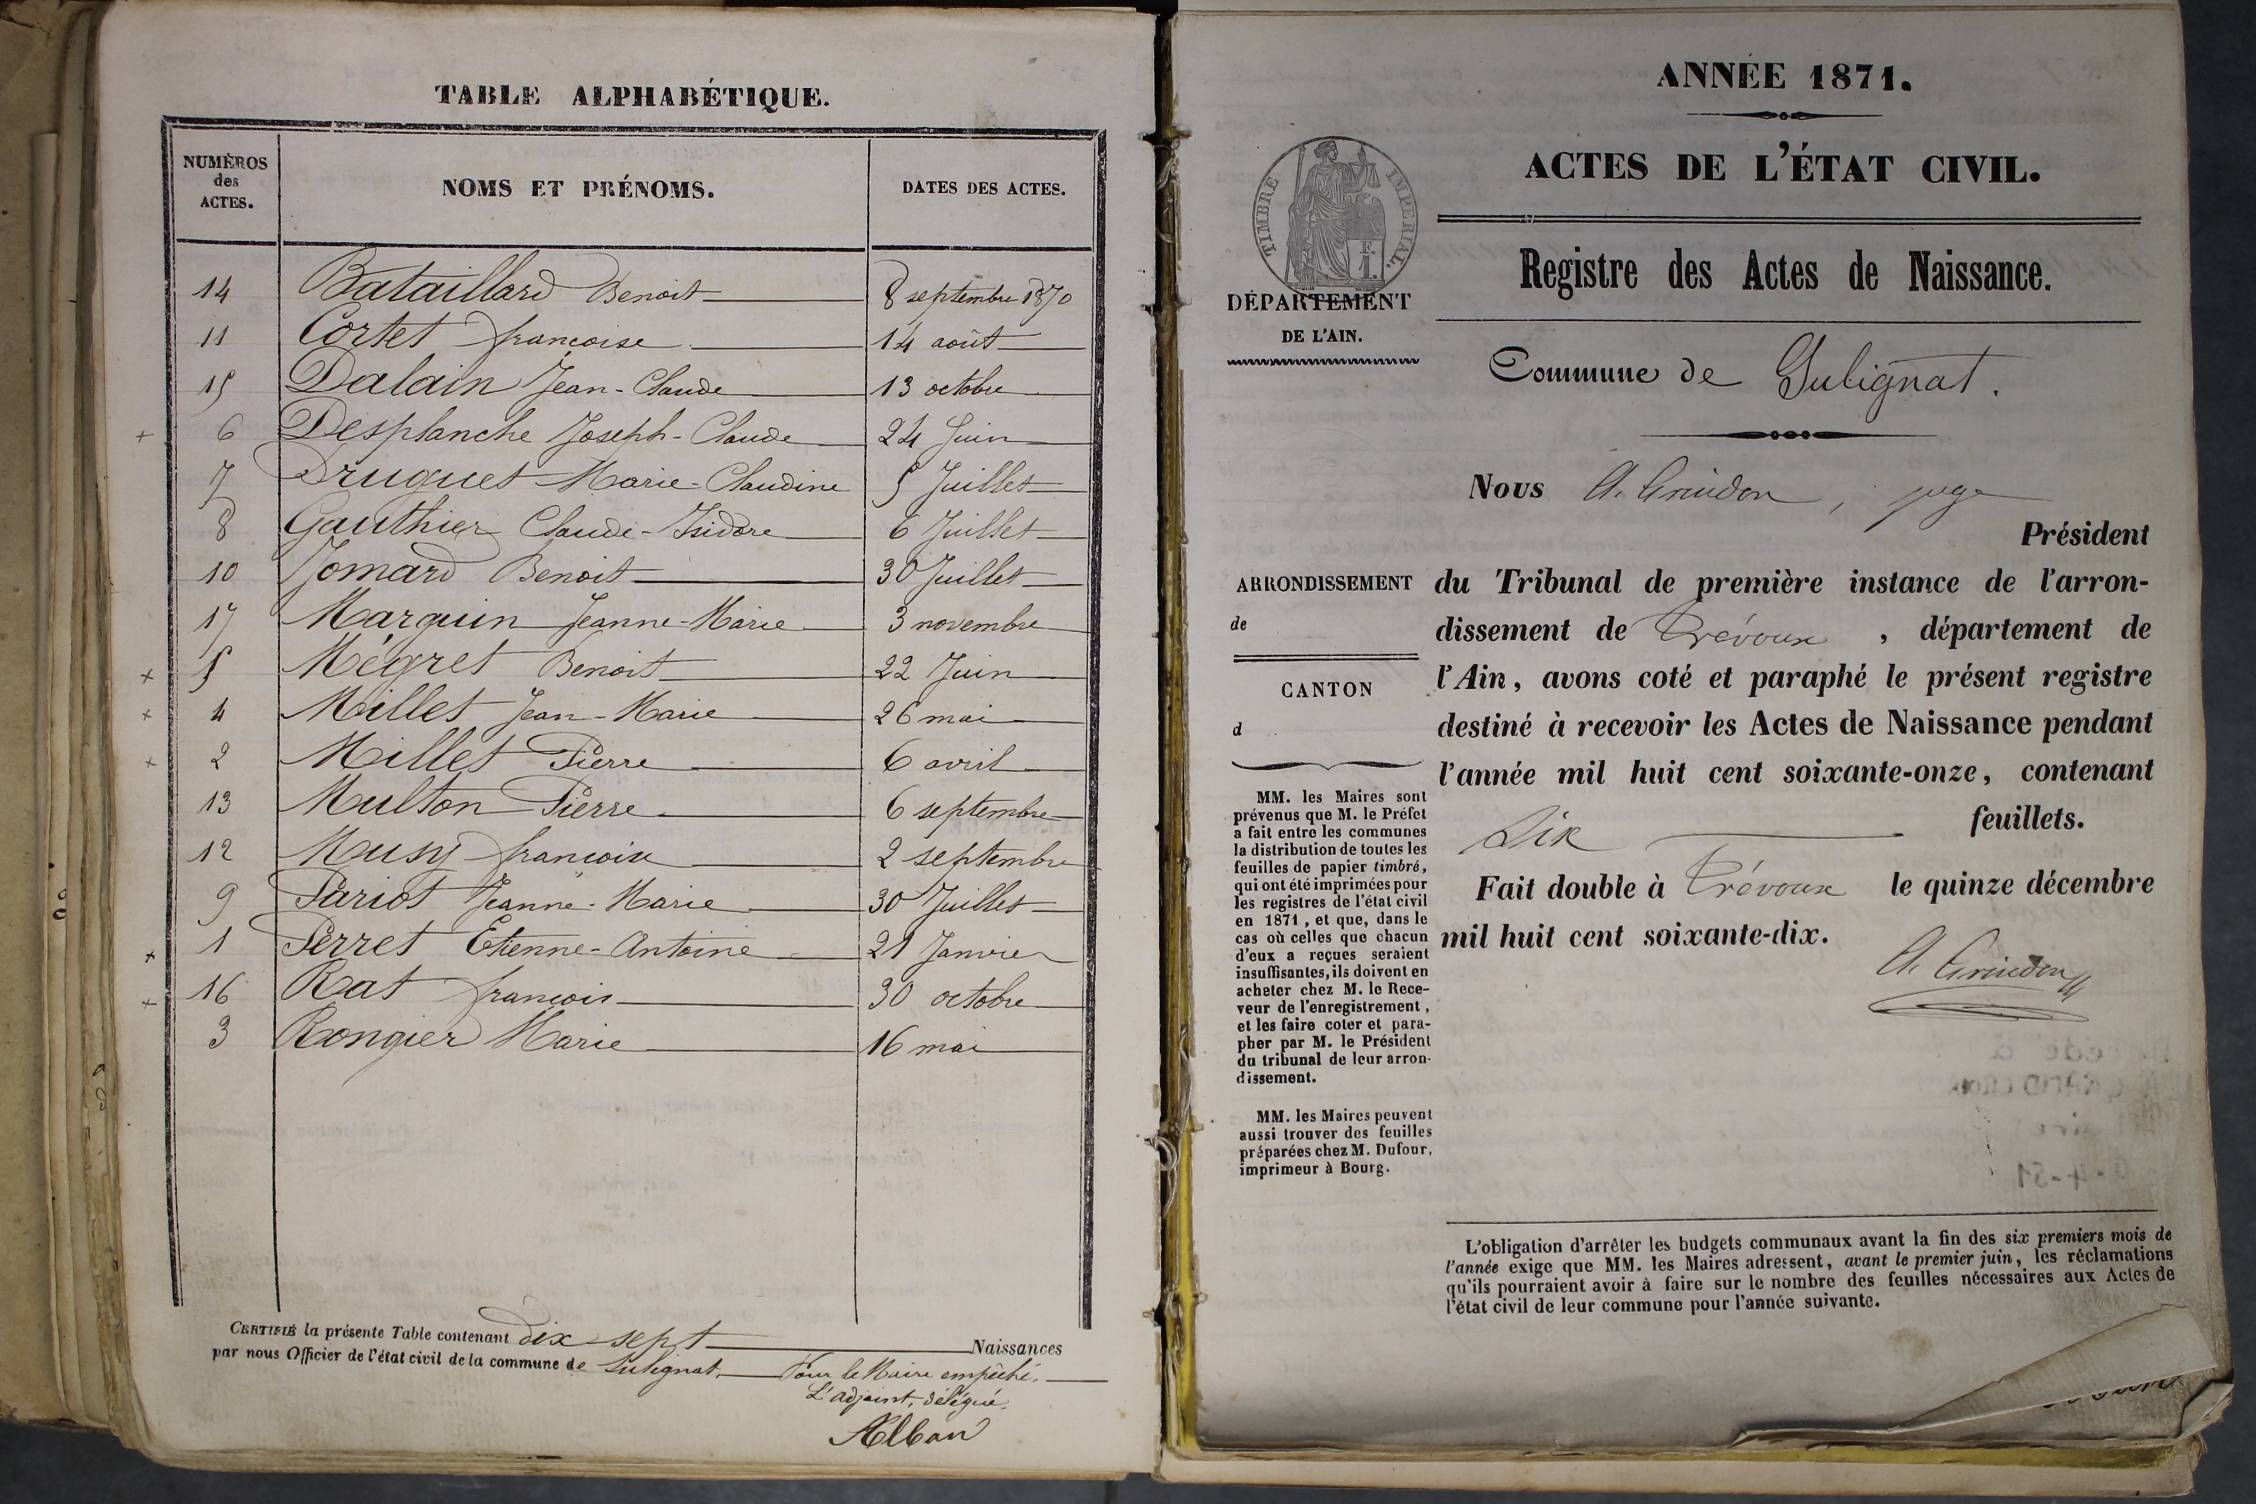 TABLE ALPHABÉTIQUE.
NUMÉROS des ACTES. NOMS ET PRÉNOMS. DATES DES ACTES.
14 Bataillard Benoit 8 septembre 1870
11 Cortet françoise 14 août
15 Dalain Jean-Claude 13 octobre
+ 6 Desplanche Joseph-Claude 24 Juin
7 Druguet Marie-Claudine 5 Juillet
8 Gauthier Claude-Isidore 6 Juillet
10 Jomard Benoit 30 Juillet
17 Marguin Jeanne-Marie 3 novembre
+ 5 Mégret Benoit 22 Juin
+ 4 Millet Jean-Marie 26 mai
+ 2 Millet Pierre 6 avril
13 Multon Pierre 6 septembre
12 Musy françoise 2 septembre
9 Pariot Jeanne-Marie 30 Juillet
+ 1 Perret Etienne-Antoine 21 Janvier
+ 16 Rat françois 30 octobre
3 Rongier Marie 16 mai
CERTIFIÉ la présente Table contenant dix sept Naissances
par nous Officier de l'état civil de la commune de Sulignat Pour le Maire empêché.
L'adjoint, délégué.
Alban
ANNÉE 1871.
ACTES DE L'ÉTAT CIVIL.
TIMBRE IMPERIAL.
F.
1.
DÉPARTEMENT
DE L'AIN.
Registre des Actes de Naissance.
Commune de Sulignat.
Nous A. Grindon, juge
Président
ARRONDISSEMENT
de
CANTON
d
du Tribunal de première instance de l'arron-
dissement de Trévoux, département de
l'Ain, avons coté et paraphé le présent registre
destiné à recevoir les Actes de Naissance pendant
l'année mil huit cent soixante-onze, contenant
Six feuillets.
Fait double à Trévoux le quinze décembre
mil huit cent soixante-dix.
A. Grindon
MM. les Maires sont
prévenus que M. le Préfet
a fait entre les communes
la distribution de toutes les
feuilles de papier timbré,
qui ont été imprimées pour
les registres de l'état civil
en 1871, et que, dans le
cas où celles que chacun
d'eux a reçues seraient
insuffisantes, ils doivent en
acheter chez M. le Rece-
veur de l'enregistrement,
et les faire coter et para-
pher par M. le Président
du tribunal de leur arron-
dissement.
MM. les Maires peuvent
aussi trouver des feuilles
préparées chez M. Dufour,
imprimeur à Bourg.
L'obligation d'arrêter les budgets communaux avant la fin des six premiers mois de
l'année exige que MM. les Maires adressent, avant le premier juin, les réclamations
qu'ils pourraient avoir à faire sur le nombre des feuilles nécessaires aux Actes de
l'état civil de leur commune pour l'année suivante.